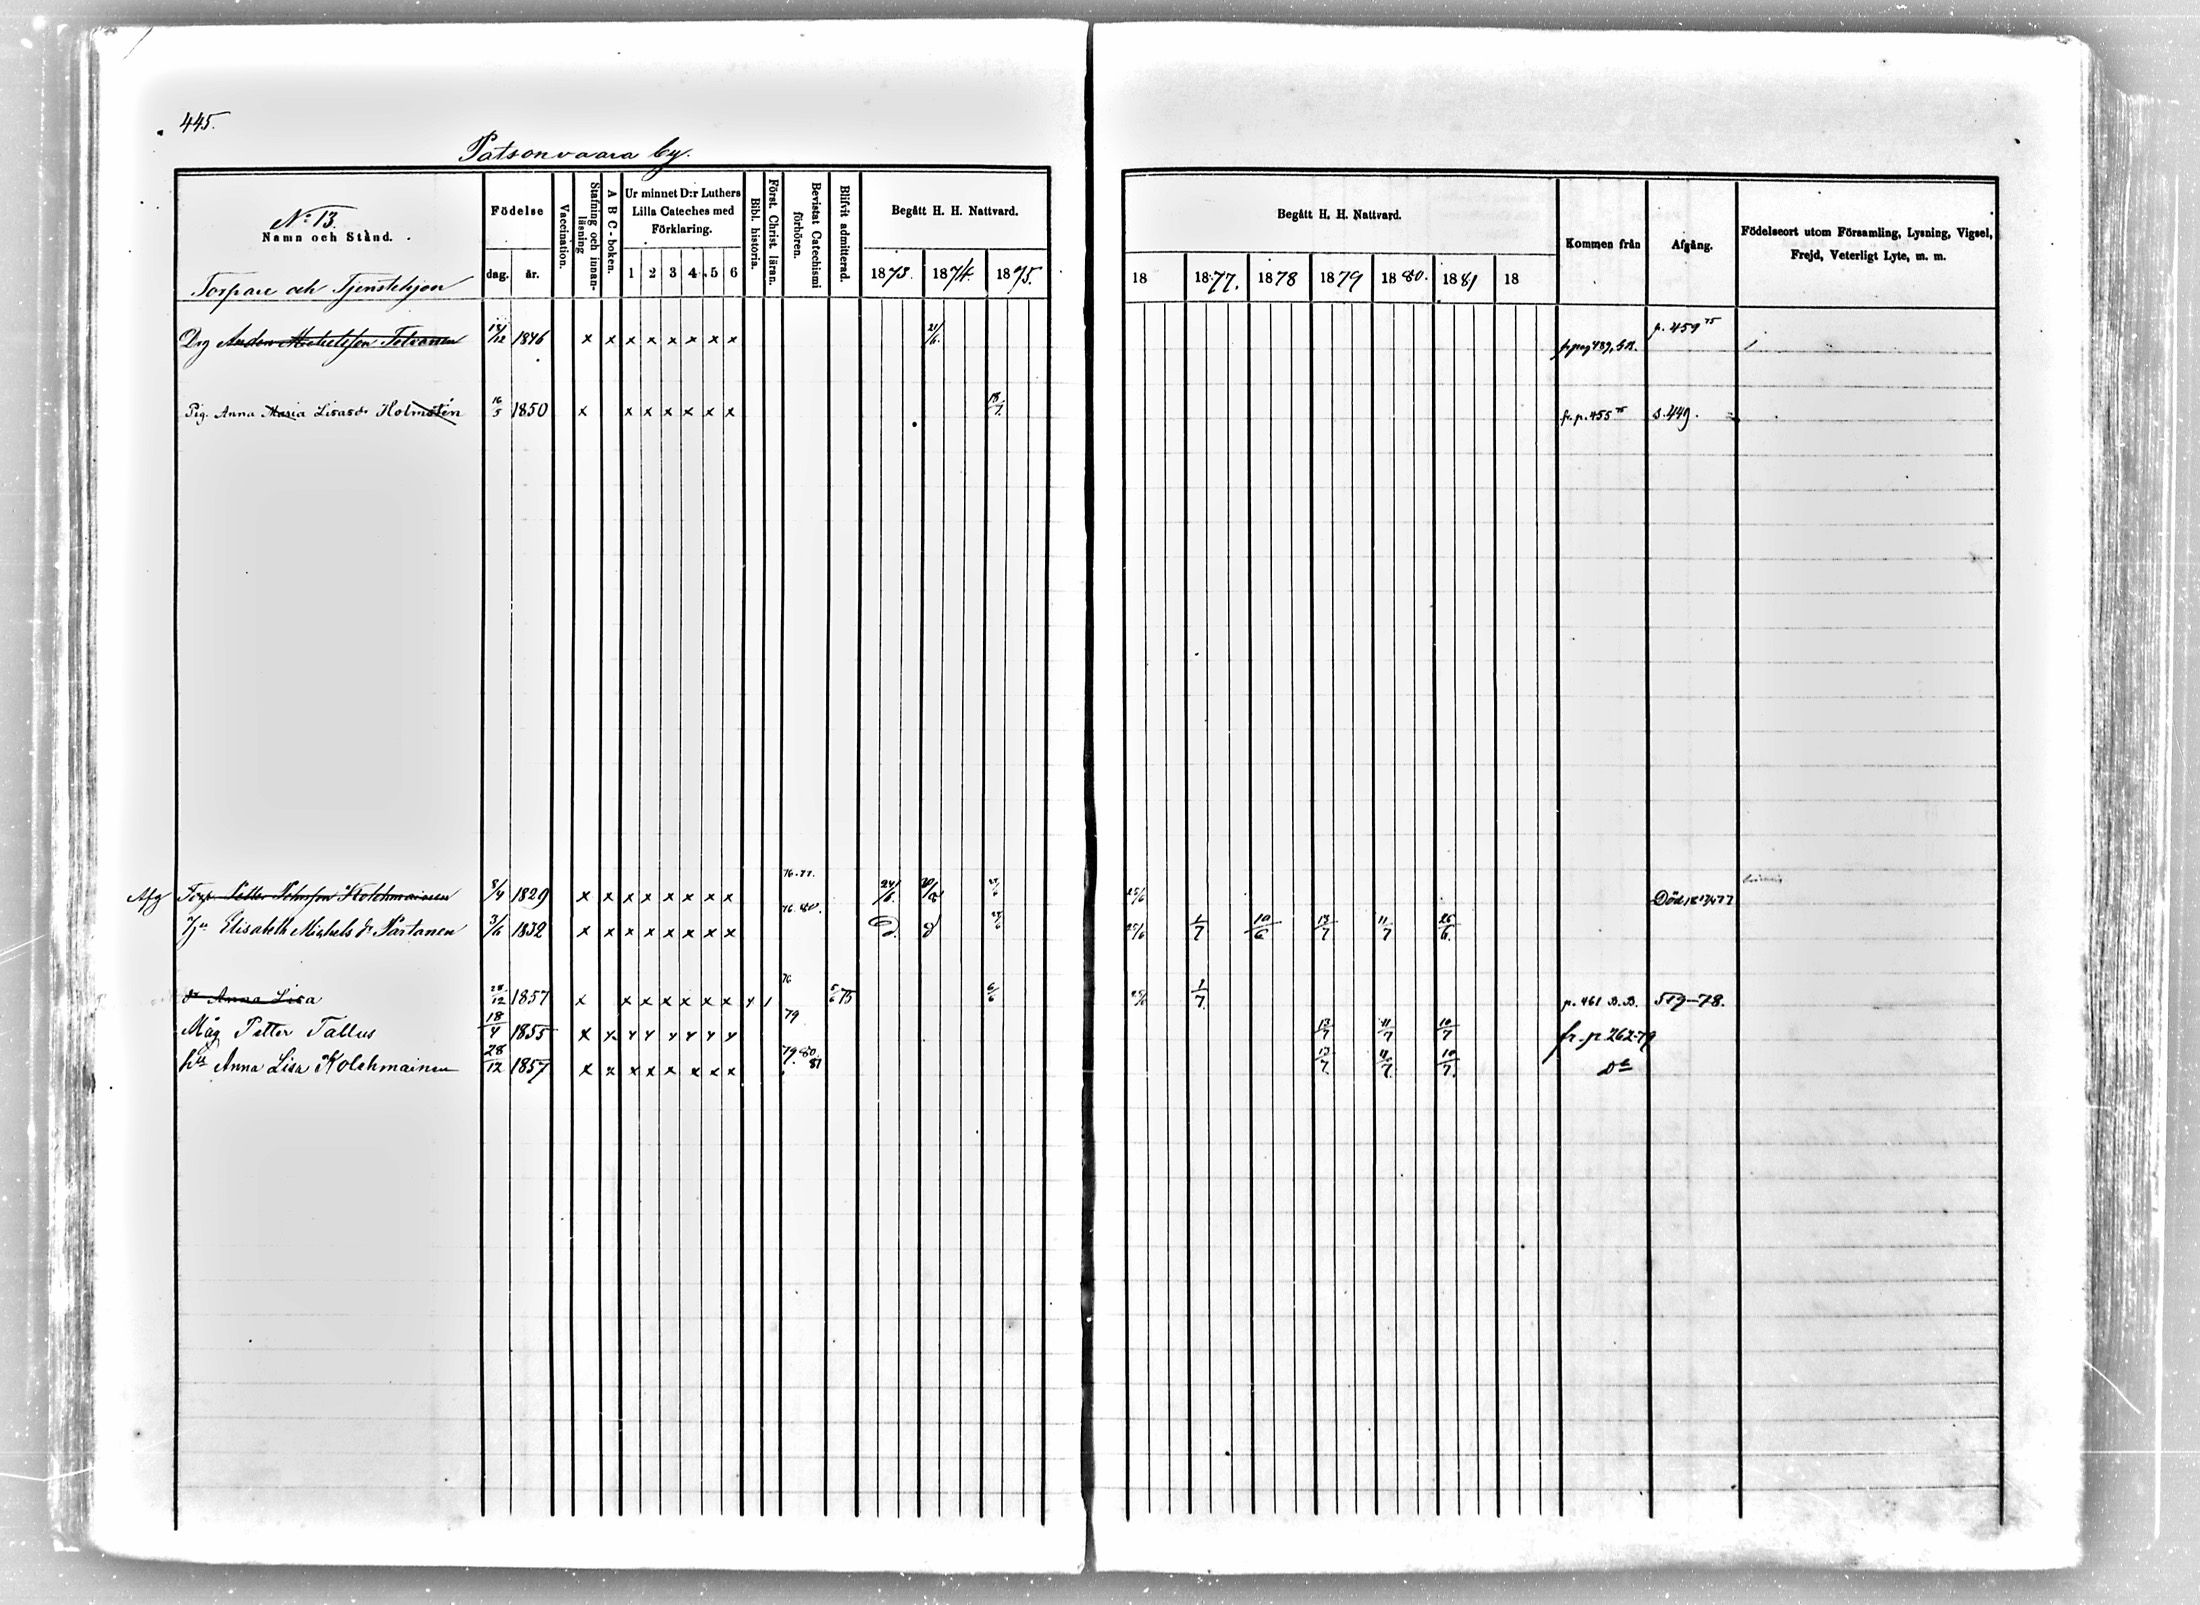 445.
Patsonvaara by.
No 13.
Namn och Stånd.
Torpare och Tjenstehjon
Födelse
dag. år.
Vaccination.
Stafning och innan-läsning
A B C-boken.
Ur minnet D:r Luthers
Lilla Cateches med
Förklaring.
1 2 3 4 5 6
Bibl. historia.
Först. Christ. läran.
Bevistat Catechismi förhören.
Blifvit admitterad.
Begått H. H. Nattvard.
1873. 1874. 1875.
Begått H. H. Nattvard.
18 1877. 1878 1879 1880. 1881 18
Kommen från
Afgång.
Födelseort utom Församling, Lysning, Vigsel,
Frejd, Veterligt Lyte, m. m.
Drg 1846 x x x x x x x x 21/6. p. 459 75
Pig. Anna Maria Lisasdr Holmstén 16/5 1850 x x x x x x x 18/7. fr. p. 455 75 s. 449.
76.77.
Afg Torp. Petter Kolehmainen 8/4 1829 x x x x x x x x 25/6 Död
76.80.
Elisabeth Michels dr Partanen 3/6 1832 x x x x x x x x 25/6 1/7 10/6 13/7 11/7 26/6.
76
dr Anna Lisa 28/12 1857 x x x x x x x 5/6 75 6/6 25/6 1/7. p. 461 B.B. 519-78.
79
Måg Petter Tallus 18/4 1855 13/7 11/7 10/7 fr. p. 262-79
79. 80. 81
Anna Lisa Kolehmainen 28/12 1857 x x x x x x x x 13/7. 11/7. 10/7. Do